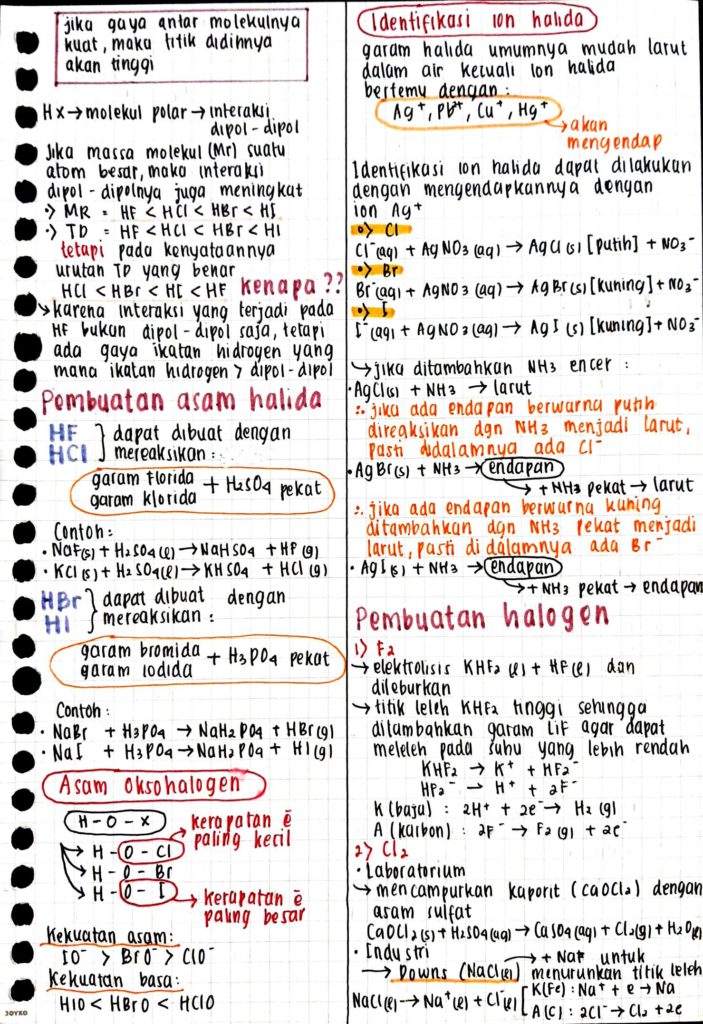 jika gaya antar molekulnya
kuat, maka titik didihnya
akan tinggi
HX → molekul polar → interaksi
dipol-dipol
Jika massa molekul (Mr) suatu
atom besar, maka interaksi
dipol-dipolnya juga meningkat
·> MR = HF < HCl < HBr < HI
·> TD = HF < HCl < HBr < HI
tetapi pada kenyataannya
urutan TD yang benar
HCl < HBr < HI < HF kenapa ??
↳ karena interaksi yang terjadi pada
HF bukan dipol-dipol saja, tetapi
ada gaya ikatan hidrogen yang
mana ikatan hidrogen > dipol-dipol
Pembuatan asam halida
HF
HCl } dapat dibuat dengan
mereaksikan :
garam florida
garam klorida + H2SO4 pekat
Contoh :
· NaF(s) + H2SO4(l) → NaHSO4 + HF (g)
· KCl(s) + H2SO4(l) → KHSO4 + HCl (g)
HBr
HI } dapat dibuat dengan
mereaksikan :
garam bromida
garam iodida + H3PO4 pekat
Contoh :
· NaBr + H3PO4 → NaH2PO4 + HBr(g)
· NaI + H3PO4 → NaH2PO4 + HI(g)
Asam oksohalogen
H - O - X
H - O - Cl → kerapatan ē
paling kecil
H - O - Br
H - O - I → kerapatan ē
paling besar
Kekuatan asam:
IO⁻ > BrO⁻ > ClO⁻
Kekuatan basa:
HIO < HBrO < HClO
JOYKO
Identifikasi ion halida
garam halida umumnya mudah larut
dalam air kecuali ion halida
bertemu dengan :
Ag⁺, Pb²⁺, Cu⁺, Hg⁺
↳ akan
mengendap
Identifikasi ion halida dapat dilakukan
dengan mengendapkannya dengan
ion Ag⁺
·> Cl
Cl⁻(aq) + AgNO3 (aq) → AgCl (s) [putih] + NO3⁻
·> Br
Br⁻(aq) + AgNO3 (aq) → AgBr(s) [kuning] + NO3⁻
·> I
I⁻(aq) + AgNO3(aq) → AgI (s) [kuning] + NO3⁻
↳ jika ditambahkan NH3 encer :
· AgCl(s) + NH3 → larut
∴ jika ada endapan berwarna putih
direaksikan dgn NH3 menjadi larut,
pasti didalamnya ada Cl⁻
· AgBr(s) + NH3 → endapan
↳ + NH3 pekat → larut
∴ jika ada endapan berwarna kuning
ditambahkan dgn NH3 pekat menjadi
larut, pasti di dalamnya ada Br⁻
· AgI(s) + NH3 → endapan
↳ + NH3 pekat → endapan
Pembuatan halogen
1) F2
↳ elektrolisis KHF2 (l) + HF(l) dan
dileburkan
↳ titik leleh KHF2 tinggi sehingga
ditambahkan garam LiF agar dapat
meleleh pada suhu yang lebih rendah
KHF2 → K⁺ + HF2⁻
HF2⁻ → H⁺ + 2F⁻
K (baja) : 2H⁺ + 2e⁻ → H2 (g)
A (karbon) : 2F⁻ → F2 (g) + 2e⁻
2) Cl2
· Laboratorium
↳ mencampurkan kaporit (CaOCl2) dengan
asam sulfat
CaOCl2(s) + H2SO4(aq) → CaSO4(aq) + Cl2(g) + H2O(l)
· Industri
→ Downs (NaCl(l)) → + NaF untuk
menurunkan titik leleh
NaCl(l) → Na⁺(l) + Cl⁻(l) [ K(Fe) : Na⁺ + e → Na
A(C) : 2Cl⁻ → Cl2 + 2e